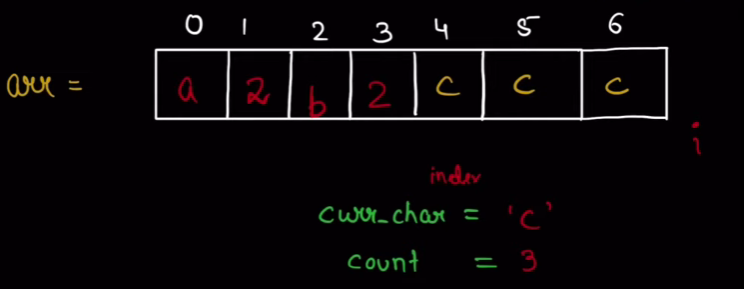 0 1 2 3 4 5 6
arr = a 2 b 2 c c c
i
index
curr_char = 'c'
count = 3